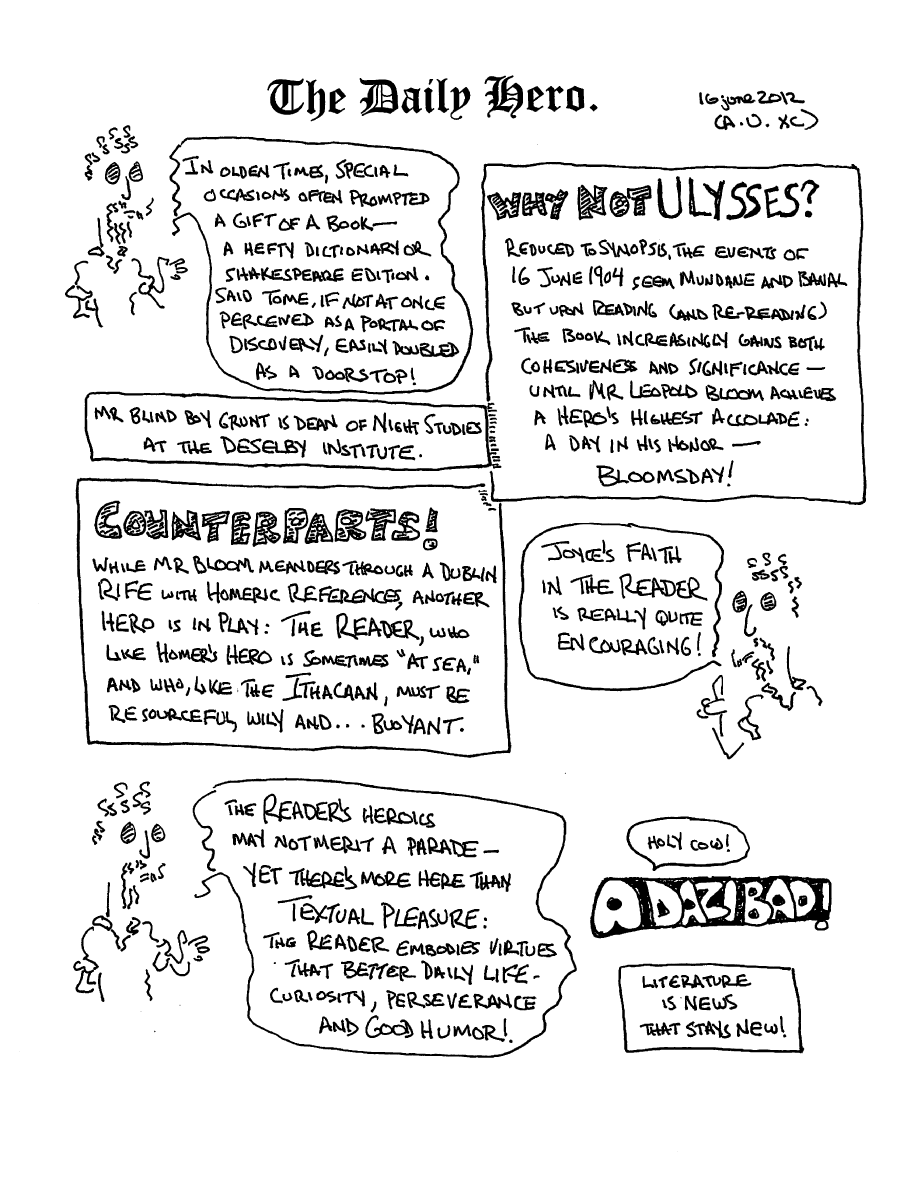 The Daily Hero.
16 june 2012
(A.U. XC)
IN OLDEN TIMES, SPECIAL
OCCASIONS OFTEN PROMPTED
A GIFT OF A BOOK—
A HEFTY DICTIONARY OR
SHAKESPEARE EDITION.
SAID TOME, IF NOT AT ONCE
PERCEIVED AS A PORTAL OF
DISCOVERY, EASILY DOUBLED
AS A DOORSTOP!
WHY NOT ULYSSES?
REDUCED TO SYNOPSIS, THE EVENTS OF
16 JUNE 1904 SEEM MUNDANE AND BANAL
BUT UPON READING (AND RE-READING)
THE BOOK INCREASINGLY GAINS BOTH
COHESIVENESS AND SIGNIFICANCE—
UNTIL MR LEOPOLD BLOOM ACHIEVES
A HERO'S HIGHEST ACCOLADE:
A DAY IN HIS HONOR —
BLOOMSDAY!
MR BLIND BOY GRUNT IS DEAN OF NIGHT STUDIES
AT THE DESELBY INSTITUTE.
COUNTERPARTS!
WHILE MR BLOOM MEANDERS THROUGH A DUBLIN
RIFE WITH HOMERIC REFERENCES, ANOTHER
HERO IS IN PLAY: THE READER, WHO
LIKE HOMER'S HERO IS SOMETIMES "AT SEA,"
AND WHO, LIKE THE ITHACAAN, MUST BE
RESOURCEFUL, WILY AND... BUOYANT.
JOYCE'S FAITH
IN THE READER
IS REALLY QUITE
ENCOURAGING!
THE READER'S HEROICS
MAY NOT MERIT A PARADE—
YET THERE'S MORE HERE THAN
TEXTUAL PLEASURE:
THE READER EMBODIES VIRTUES
THAT BETTER DAILY LIFE-
CURIOSITY, PERSEVERANCE
AND GOOD HUMOR!
HOLY COW!
A DAZIBAO!
LITERATURE
IS NEWS
THAT STAYS NEW!